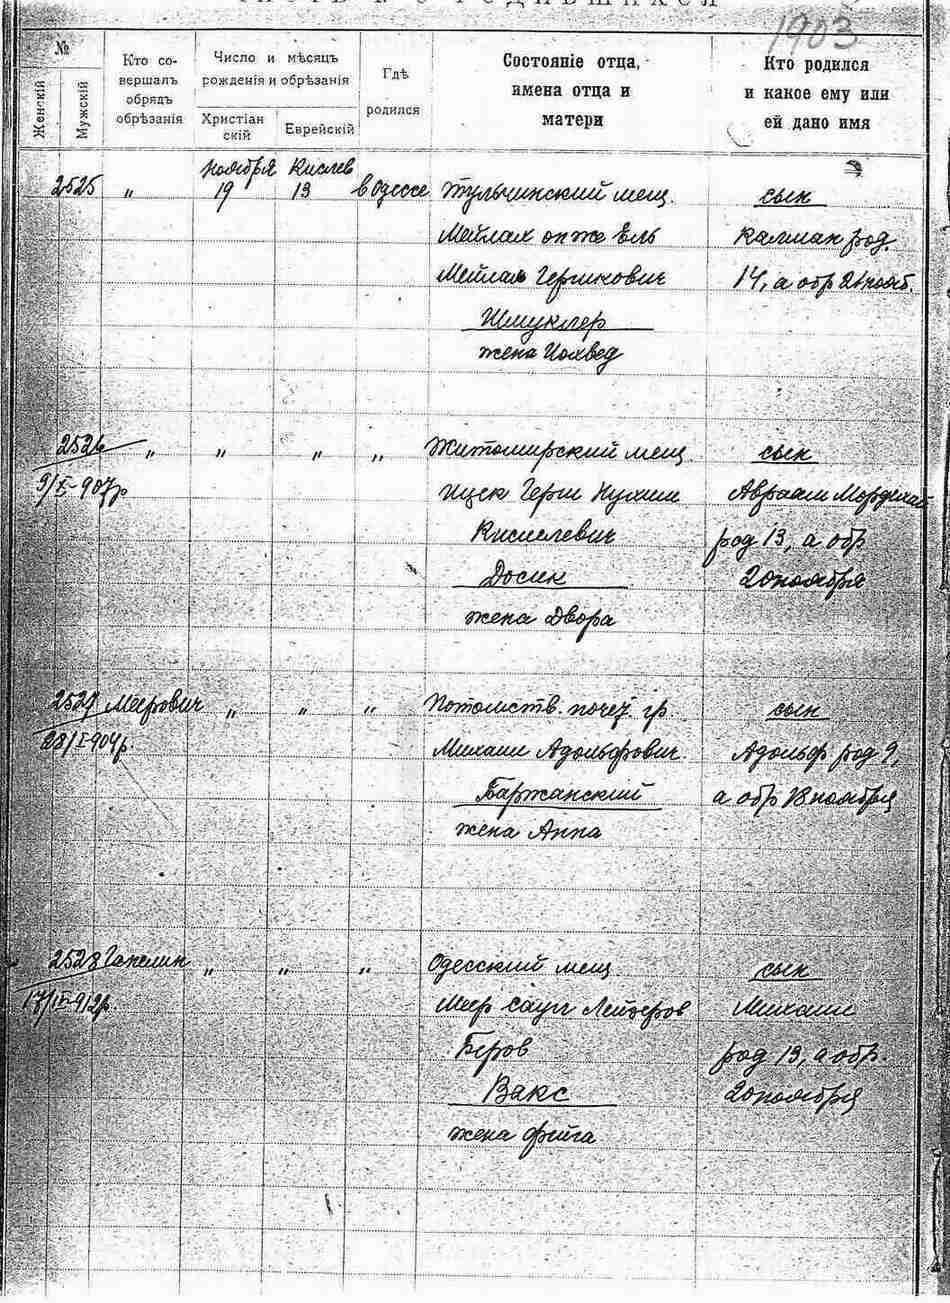 1903
№
Женскій
Мужскій
Кто со-
вершалъ
обрядъ
обрѣзанія
Число и мѣсяцъ
рожденія и обрѣзанія
Христіан
скій
Еврейскій
Гдѣ
родился
Состояніе отца,
имена отца и
матери
Кто родился
и какое ему или
ей дано имя
ноября Кислев
2525 " 19 13 в Одессе Тульчинский мещ. сын
Мейлах он же Ель Калман род.
Мейлах Гершкович 14, а обр 21 нояб.
Шмуклер
жена Иохвед
2526 " " " " Житомирский мещ. сын
9/X-907 р Ицек Герш Нухим Авраам Мордхай
Киселевич род 13, а обр
Досик 20 ноября
жена Двора
2527 Меерович " " " Потомств. почет. гр. сын
28/I-904 р. Михаил Адольфович Адольф род 9,
Баржанский а обр 18 ноября
жена Анна
2528 Гапелин " " " Одесский мещ. сын
912 р. Меер Саул Лейзеров Михаил
Беров род 13, а обр.
Вакс 20 ноября
жена Фейга